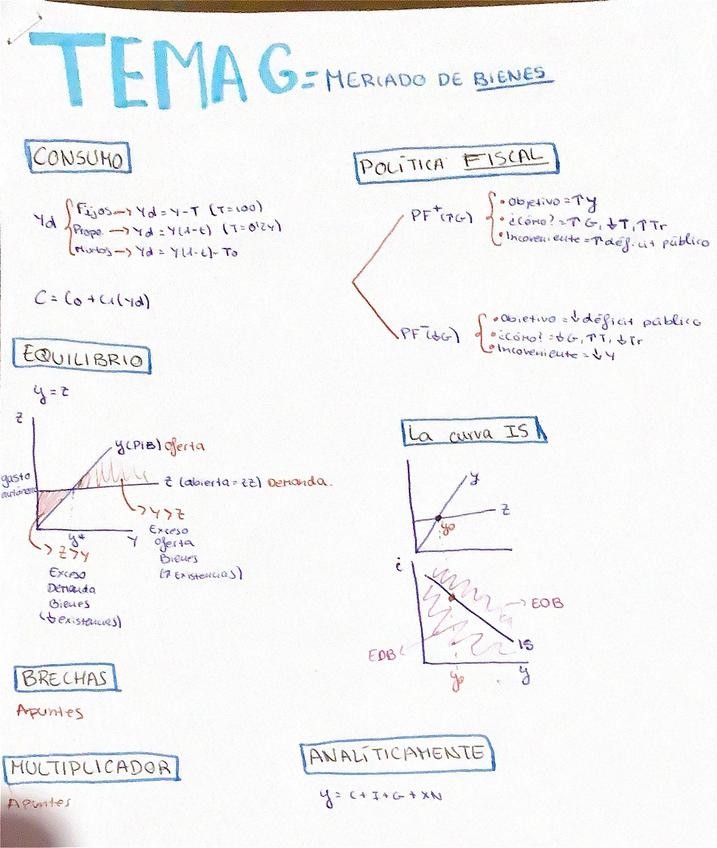 TEMA 6 = MERCADO DE BIENES
CONSUMO
Yd
Fijos → Yd = Y-T (T=100)
Propo → Yd = Y(1-t) (T=0'24)
Mixtos → Yd = Y(1-t)- To
C = Co + C1(Yd)
EQUILIBRIO
y = z
z
y(PIB) oferta
gasto
autónomo
z (abierta = zz) Demanda.
y*
Y
→ Y > Z
Exceso
oferta
Bienes
(↑ Existencias)
→ Z > Y
Exceso
Demanda
Bienes
(↓ existencias)
BRECHAS
Apuntes
MULTIPLICADOR
Apuntes
POLÍTICA FISCAL
PF⁺(↑G)
• Objetivo = ↑ y
• ¿Cómo? = ↑ G, ↓ T, ↑ Tr
• Incoveniente = ↑ déficit público
PF⁻(↓G)
• Objetivo = ↓ déficit público
• ¿Cómo? = ↓ G, ↑ T, ↓ Tr
• Incoveniente = ↓ Y
La curva IS
y
z
yo
i
→ EOB
EDB
IS
yo
y
ANALÍTICAMENTE
y = C + I + G + XN